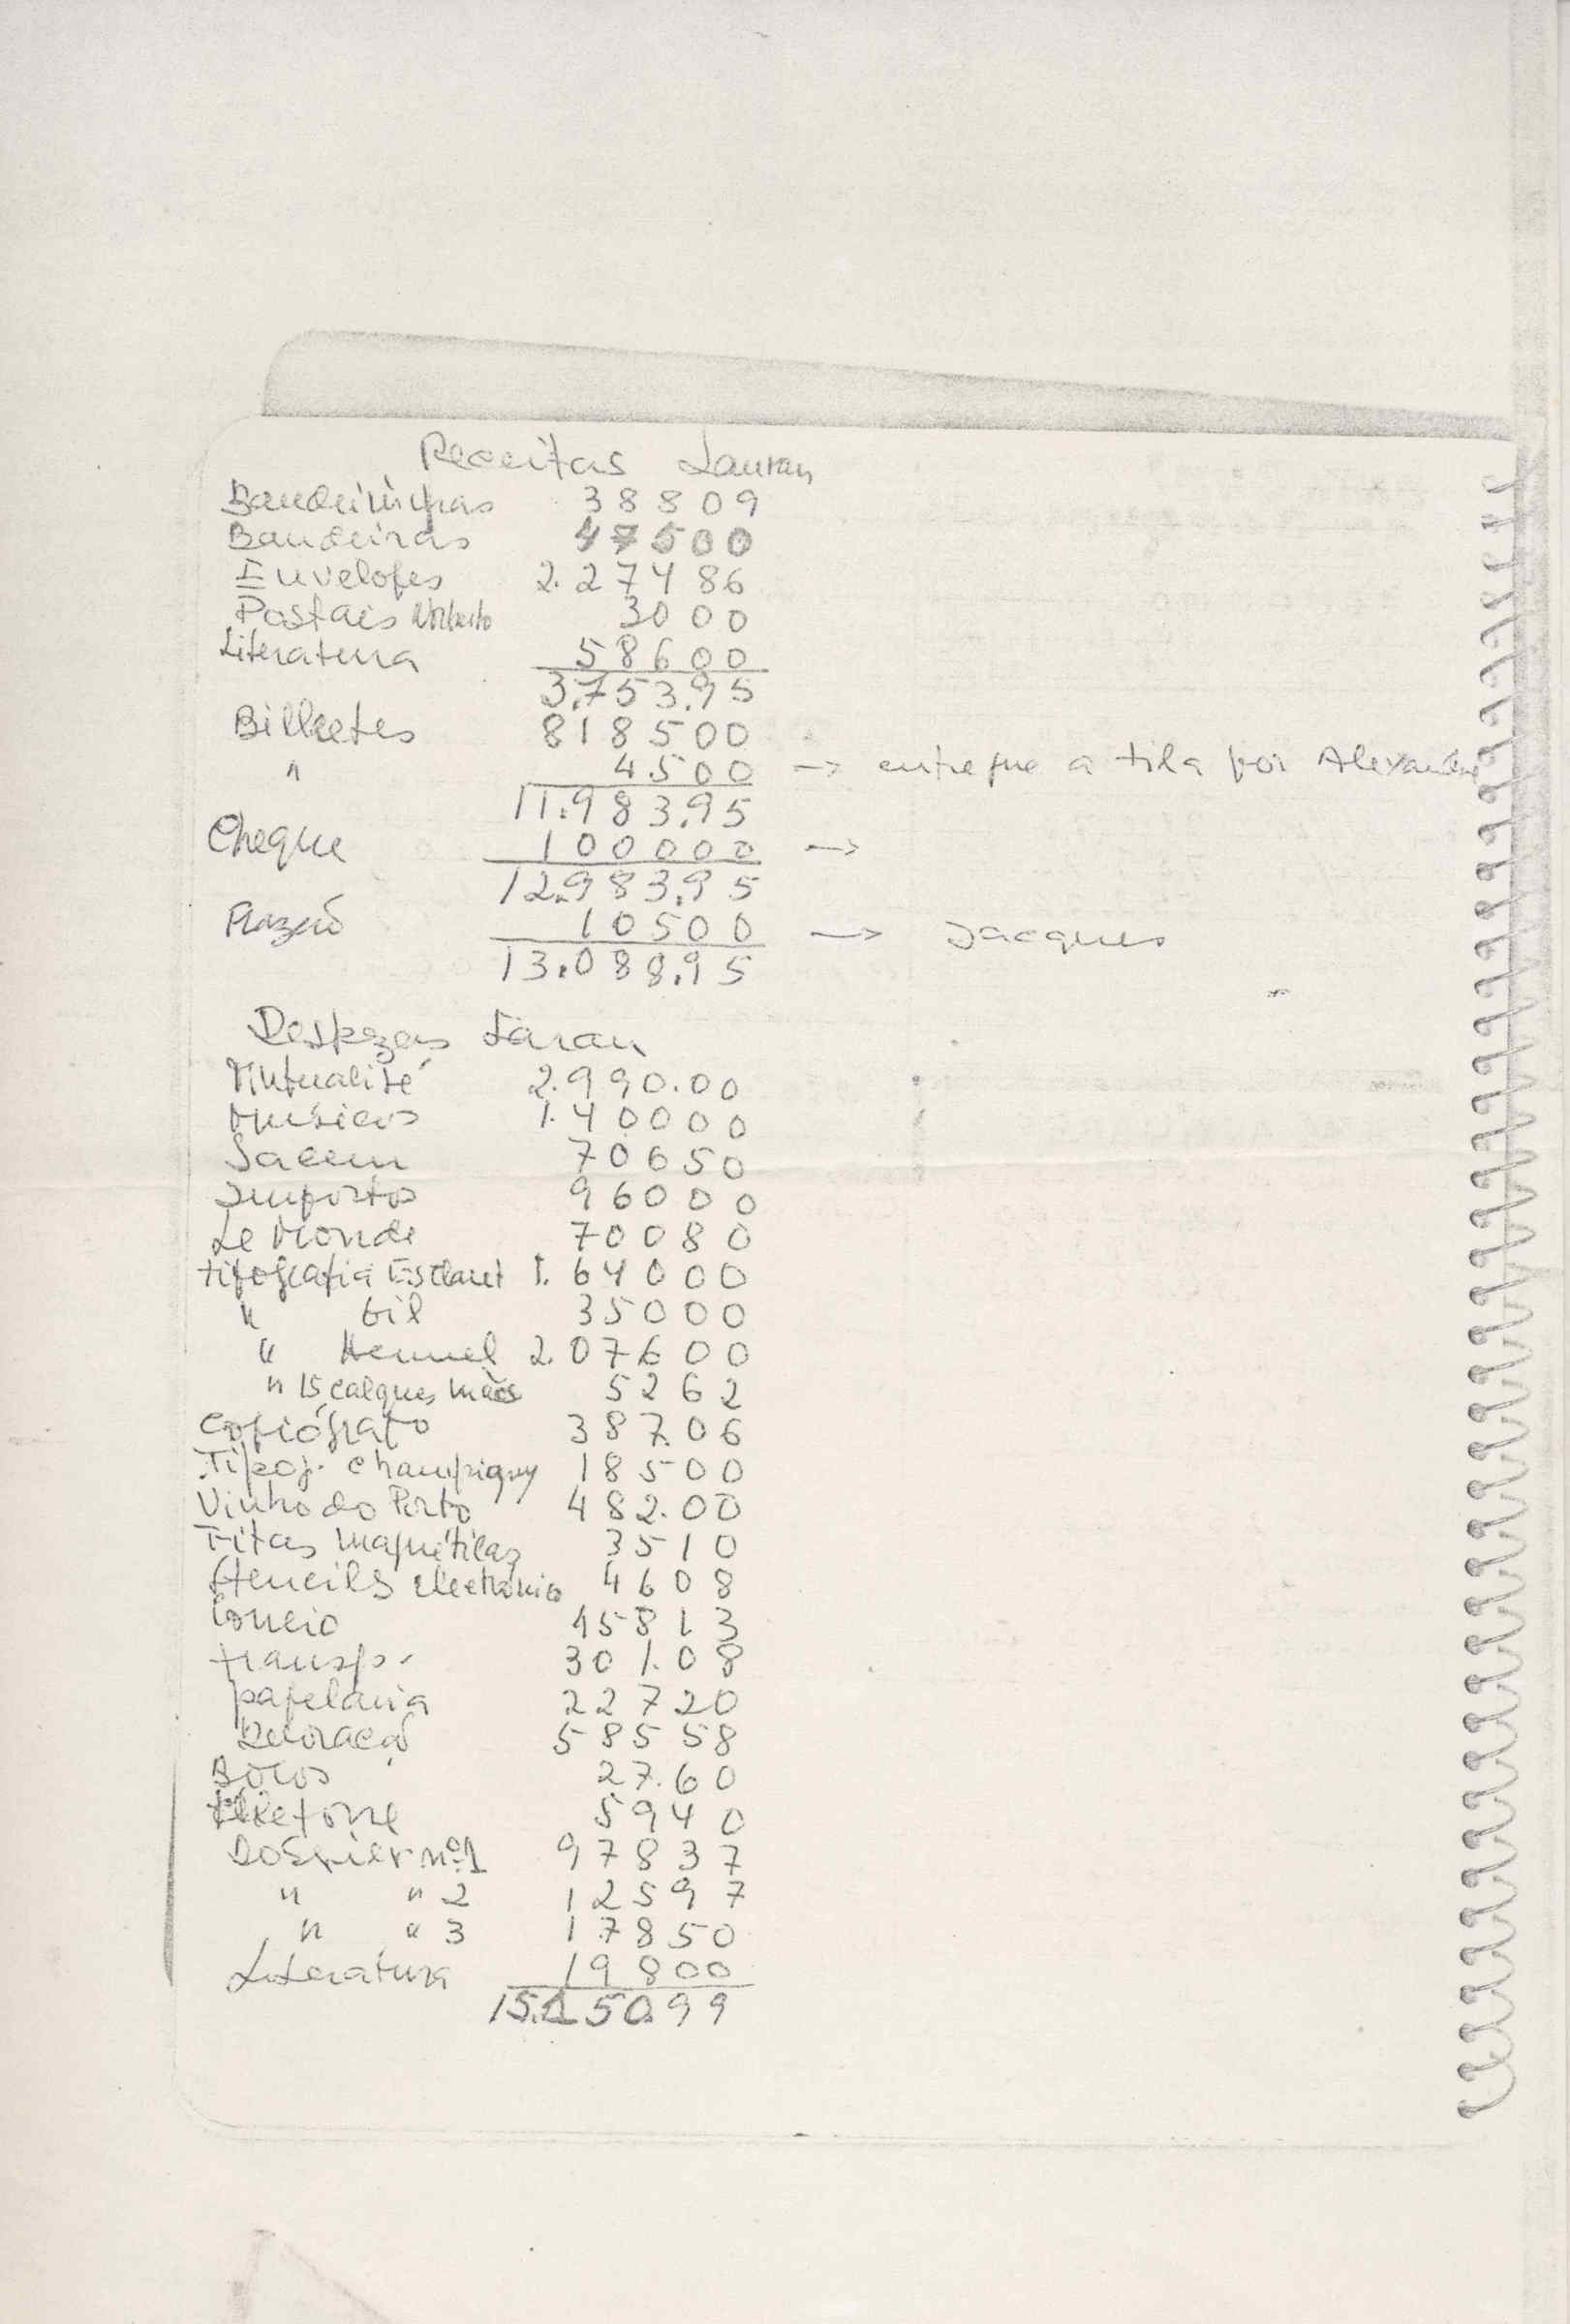 Receitas Lauran
Bandeirinhas 38809
Bandeiras 47500
Envelopes 2.27486
Postais Norberto 3000
Literatura 58600
3.753.95
Bilhetes 818500
" 4500 → entregue a tila por Alexandre
11.983.95
Cheque 100000 →
12.983.95
10500 → Jacques
13.088.95
Despezas Laran
Mutualité 2.990.00
Músicos 1.40000
Sacem 70650
Impostos 96000
Le Monde 70080
tipografia Esclaret 1.64000
" Gil 35000
" Hemmel 2.07600
" 15 calques mães 5262
Copiógrafo 387.06
Tipog. Champigny 18500
Vinho do Porto 482.00
Fitas magnéticas 3510
Stencils electronico 4608
Correio 45813
transp. 301.08
papelaria 22720
Decoração 58558
Bolos 27.60
telefone 5940
Dossier nº1 97837
" " 2 12597
" " 3 17850
Literatura 19800
15.150.99